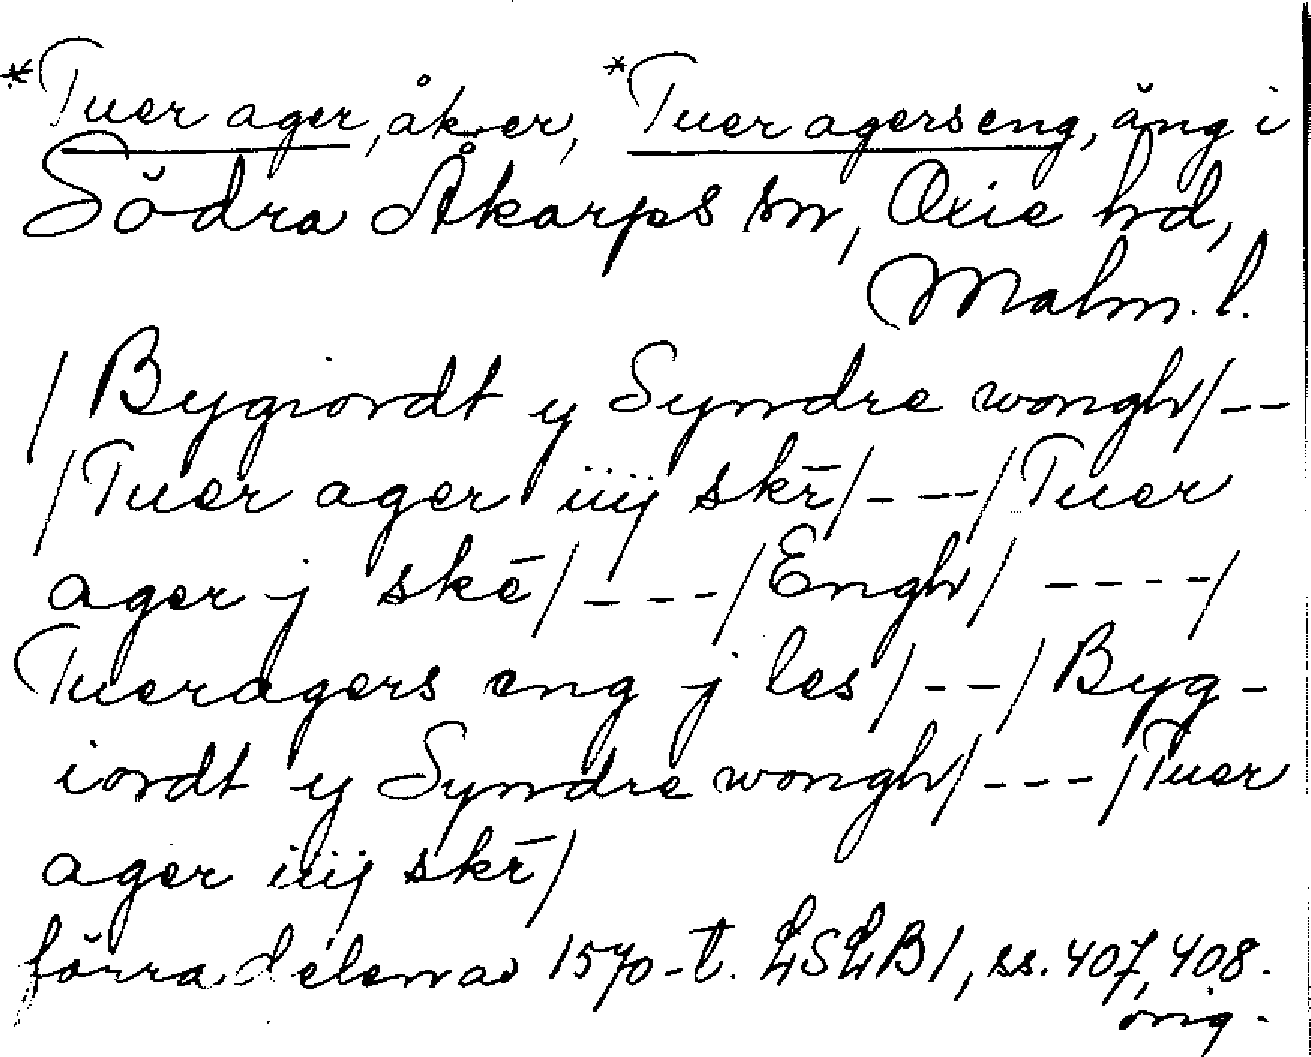 *Tuer ager, åker, *Tuer agers eng, äng i
Södra Åkarps sn, Oxie hd,
Malm. l.
/Bygiordt y Syndre wongh/--
/Tuer ager iiij skr̄/---/Tuer
ager j skē/---/Engh/ ----/
Tueragers eng j les/--/Byg-
iordt y Syndre wongh/---/Tuer
ager iiij skr̄/
förra delen av 1570-t. LSLB1, ss. 407, 408.
orig.